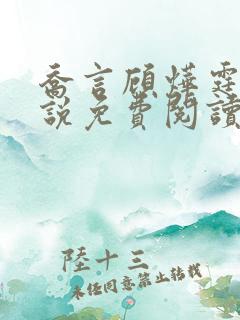 喬言顧燁霆
說免費閱讀
陸十三
未經同意禁止轉載